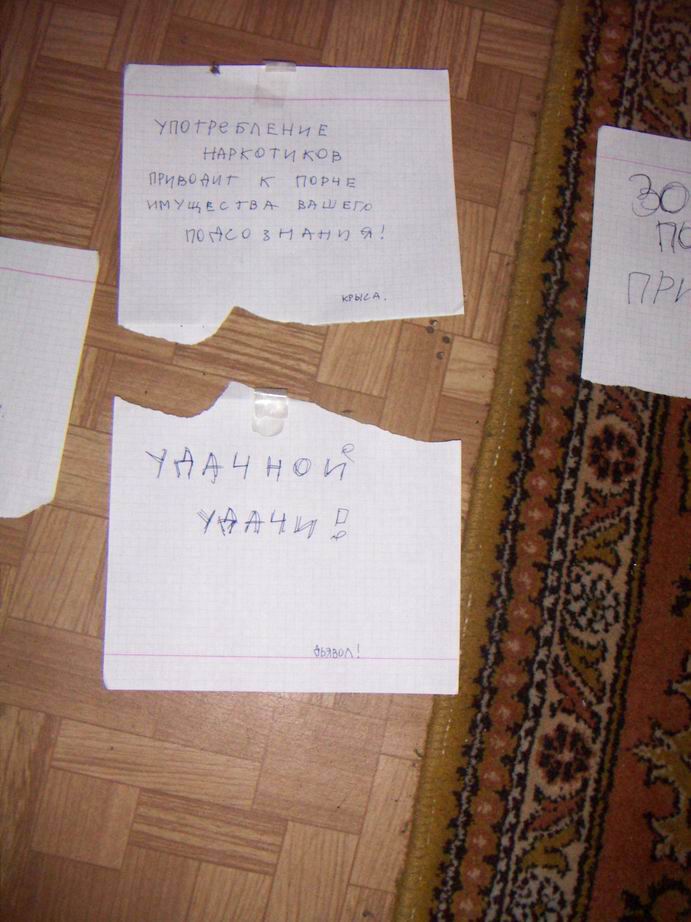 УПОТРЕБЛЕНИЕ
НАРКОТИКОВ
ПРИВОДИТ К ПОРЧЕ
ИМУЩЕСТВА ВАШЕГО
ПОДСОЗНАНИЯ!
КРЫСА.
УДАЧНОЙ
УДАЧИ!
ДЬЯВОЛ!